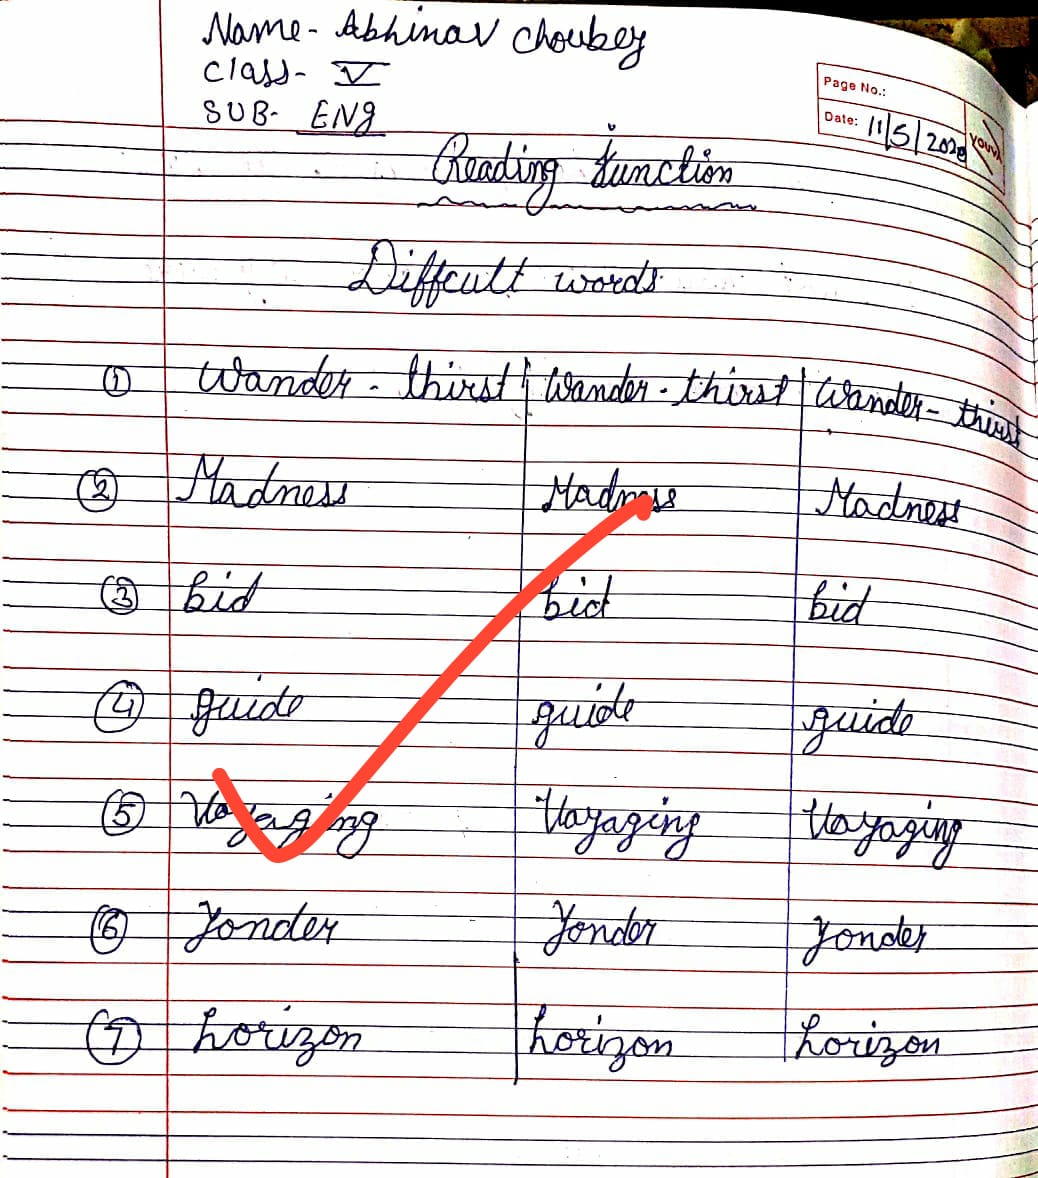 Name- Abhinav Choubey
Class- V
SUB- ENG
Page No.:
Date: 11/5/2020
YOUVA
Reading function
Diffcult words
① Wander - thirst | Wander - thirst | Wander - thirst
② Madness Madness Madness
③ bid bid bid
④ guide guide guide
⑤ Voyaging Voyaging Voyaging
⑥ Yonder Yonder Yonder
⑦ horizon horizon horizon